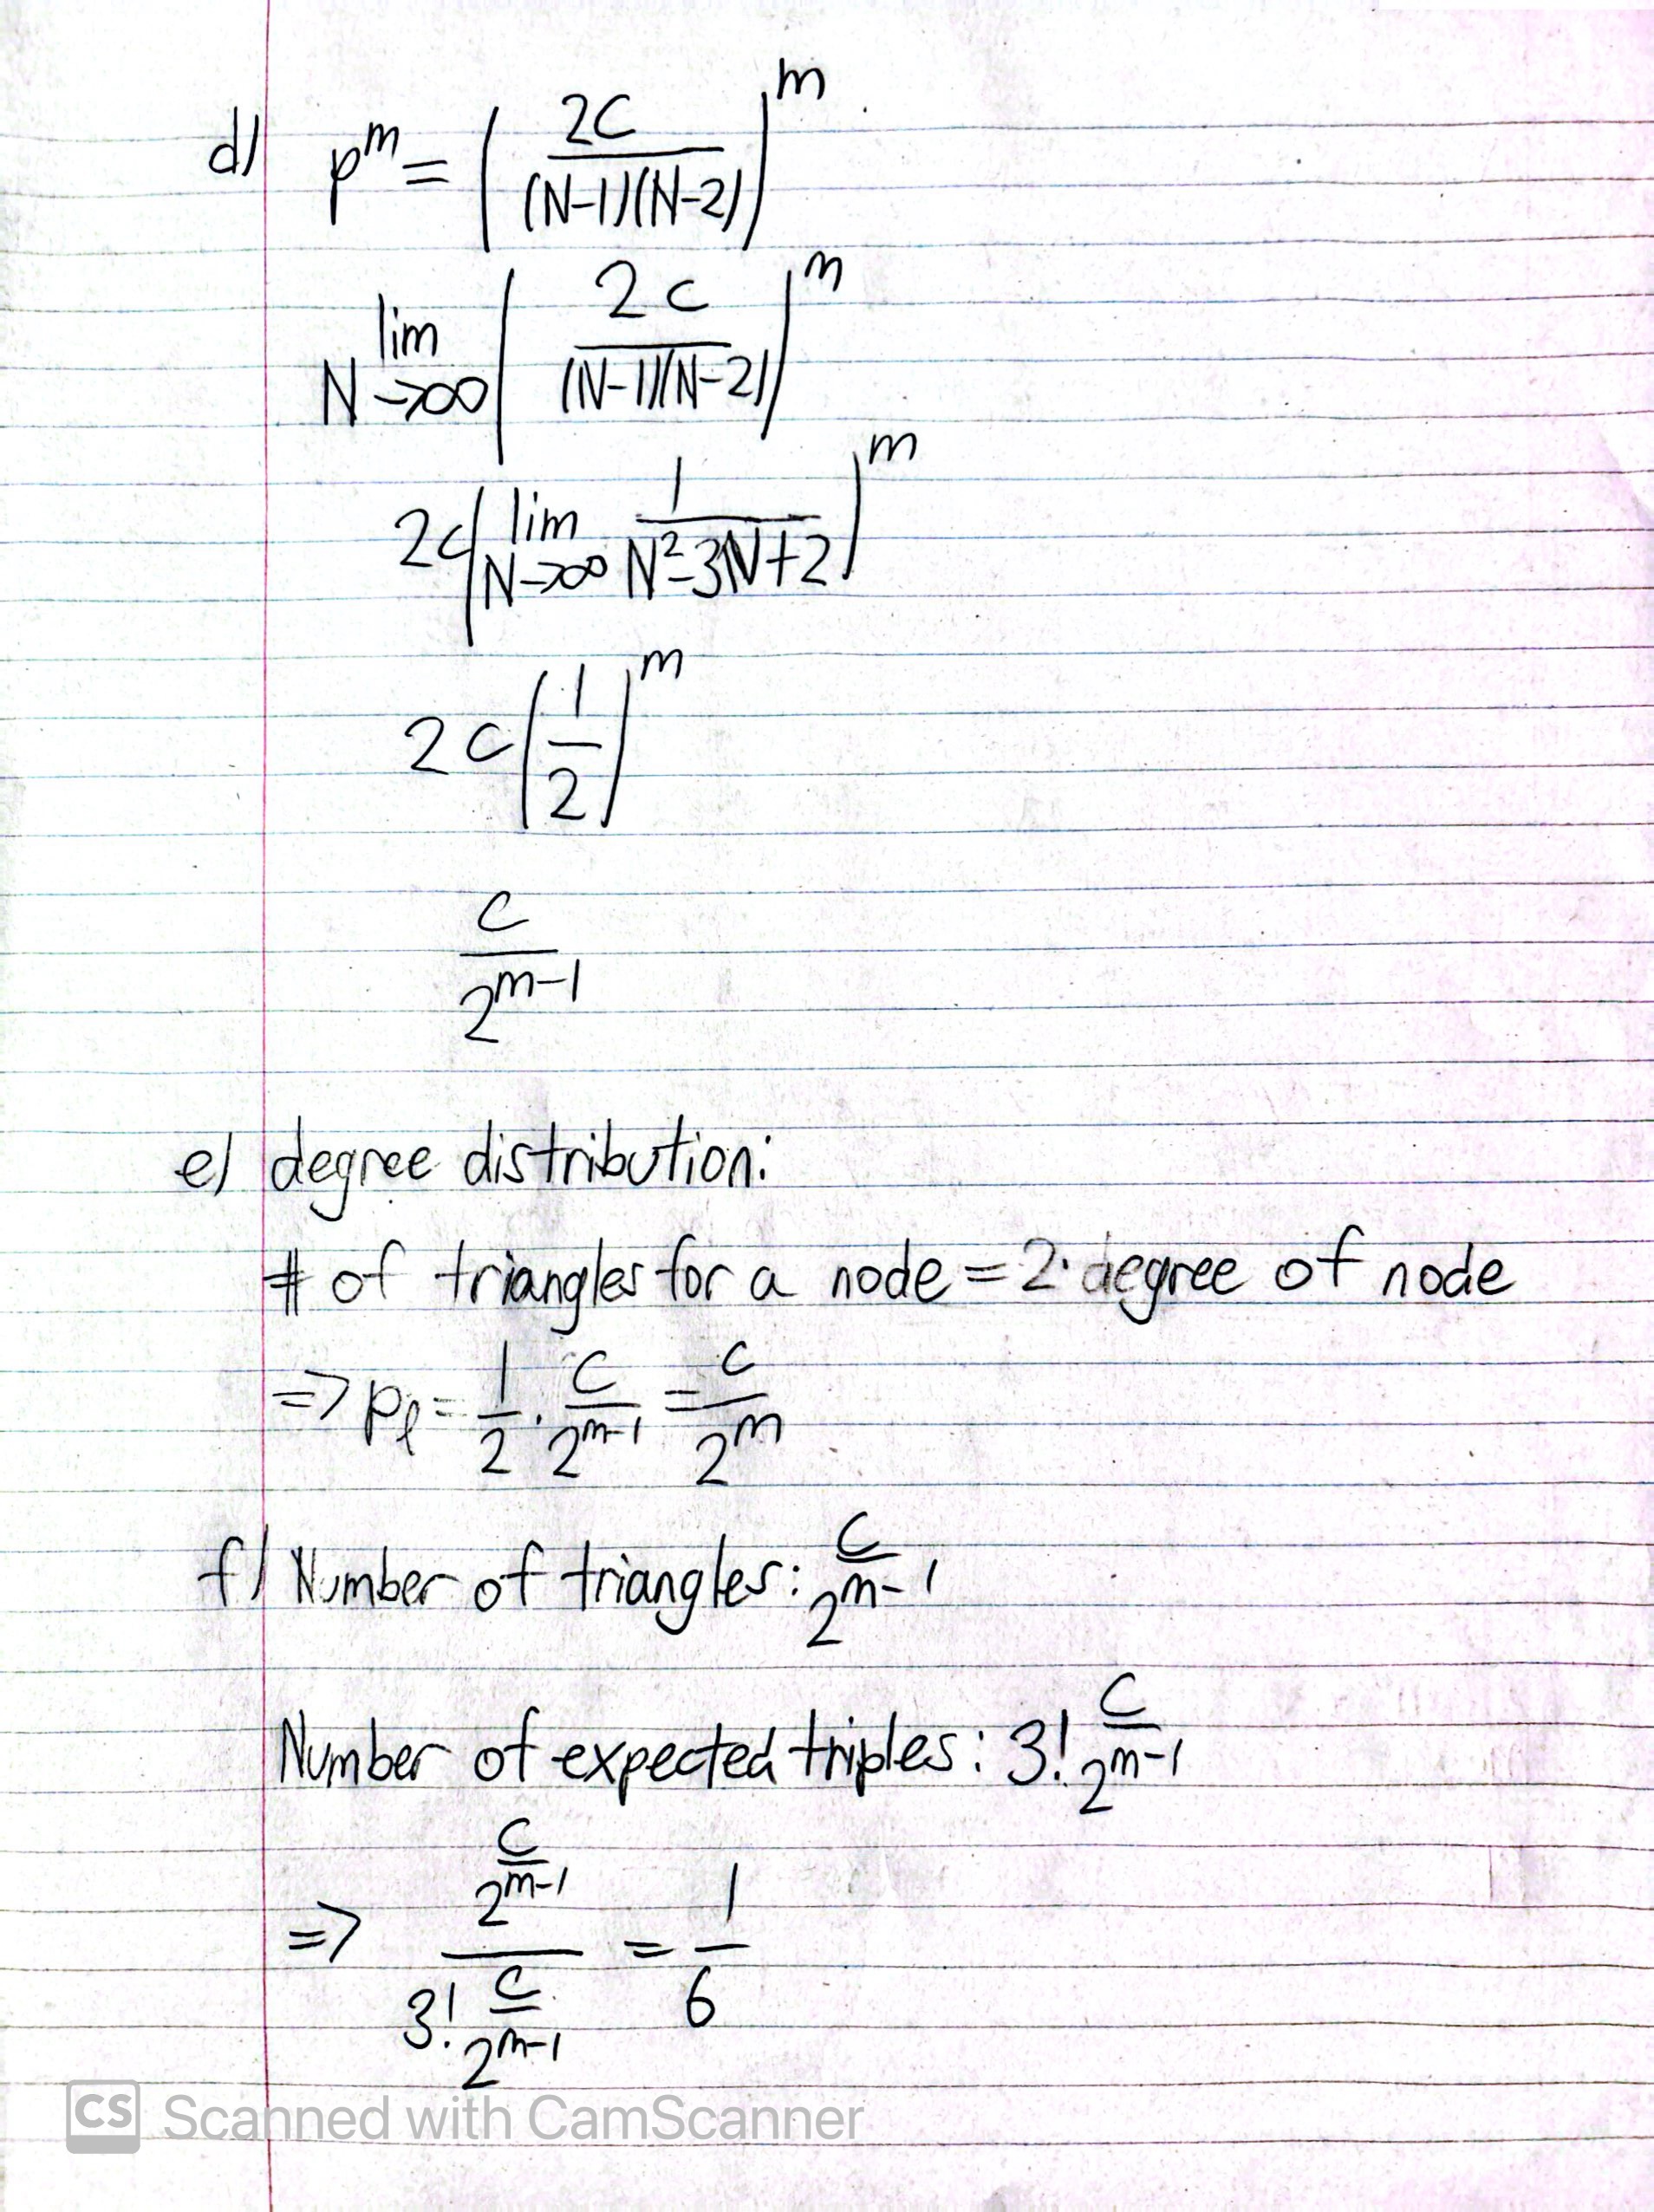 d) p^m = (2C / (N-1)(N-2))^m
lim N→∞ (2C / (N-1)(N-2))^m
2C (lim N→∞ 1 / N²-3N+2)^m
2C (1/2)^m
C / 2^{m-1}
e) degree distribution:
# of triangles for a node = 2·degree of node
=> p_ℓ = 1/2 · C/2^{m-1} = C/2^m
f) Number of triangles: C/2^{m-1}
Number of expected triples: 3! C/2^{m-1}
=> (C/2^{m-1}) / (3! C/2^{m-1}) = 1/6
CS Scanned with CamScanner